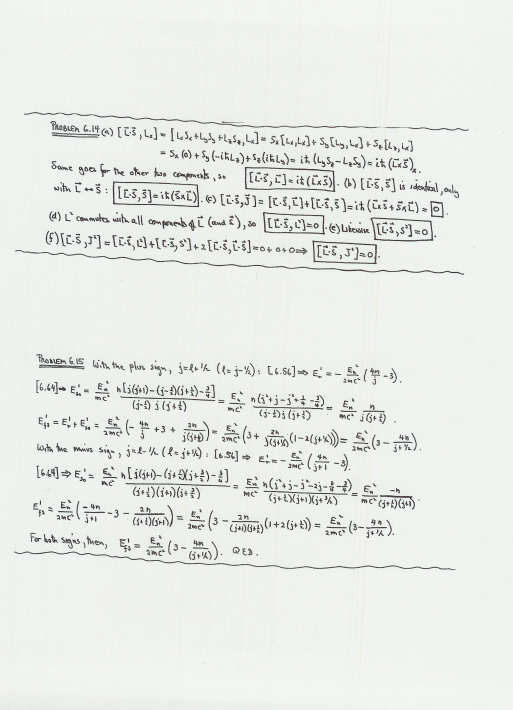 PROBLEM 6.14 (a) [L⃗·S⃗, Lx] = [LxSx + LySy + LzSz, Lx] = Sx[Lx,Lx] + Sy[Ly,Lx] + Sz[Lz,Lx]
= Sx(0) + Sy(-iħLz) + Sz(iħLy) = iħ(LySz - LzSy) = iħ(L⃗×S⃗)x.
Same goes for the other two components, so [L⃗·S⃗, L⃗] = iħ(L⃗×S⃗). (b) [L⃗·S⃗, S⃗] is identical, only
with L⃗ ↔ S⃗: [L⃗·S⃗, S⃗] = iħ(S⃗×L⃗). (c) [L⃗·S⃗, J⃗] = [L⃗·S⃗, L⃗] + [L⃗·S⃗, S⃗] = iħ(L⃗×S⃗ + S⃗×L⃗) = 0.
(d) L² commutes with all components of L⃗ (and S⃗), so [L⃗·S⃗, L²] = 0. (e) Likewise [L⃗·S⃗, S²] = 0.
(f) [L⃗·S⃗, J²] = [L⃗·S⃗, L²] + [L⃗·S⃗, S²] + 2[L⃗·S⃗, L⃗·S⃗] = 0 + 0 + 0 ⇒ [L⃗·S⃗, J²] = 0.
PROBLEM 6.15 With the plus sign, j = l + 1/2 (l = j - 1/2): [6.56] ⇒ Er' = - En²/2mc² (4n/j - 3).
[6.64] ⇒ Eso' = En²/mc² n[j(j+1) - (j-1/2)(j+1/2) - 3/4]/(j-1/2) j (j+1/2) = En²/mc² n(j² + j - j² + 1/4 - 3/4)/(j-1/2) j (j+1/2) = En²/mc² n/j(j+1/2).
Efs' = Er' + Eso' = En²/2mc² (- 4n/j + 3 + 2n/j(j+1/2)) = En²/2mc² (3 + 2n/j(j+1/2) (1 - 2(j+1/2))) = En²/2mc² (3 - 4n/j+1/2).
With the minus sign, j = l - 1/2 (l = j + 1/2): [6.56] ⇒ Er' = - En²/2mc² (4n/j+1 - 3).
[6.64] ⇒ Eso' = En²/mc² n[j(j+1) - (j+1/2)(j+3/2) - 3/4]/(j+1/2)(j+1)(j+3/2) = En²/mc² n(j² + j - j² - 2j - 3/4 - 3/4)/(j+1/2)(j+1)(j+3/2) = En²/mc² -n/(j+1/2)(j+1).
Efs' = En²/2mc² (- 4n/j+1 - 3 - 2n/(j+1/2)(j+1)) = En²/2mc² (3 - 2n/(j+1)(j+1/2) (1 + 2(j+1/2)) = En²/2mc² (3 - 4n/j+1/2).
For both signs, then, Efs' = En²/2mc² (3 - 4n/(j+1/2)). QED.